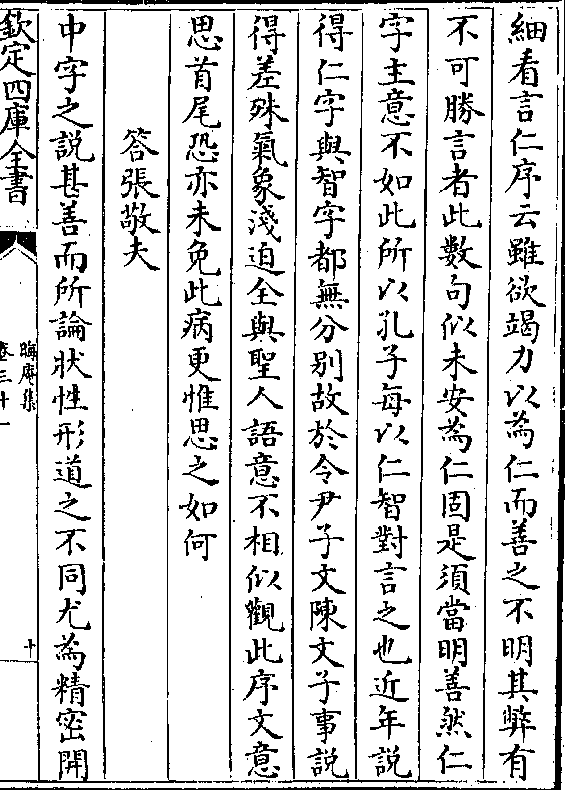 細看言仁序云雖欲竭力以為仁而善之不明其弊有
不可勝言者此數句似未安為仁固是須當明善然仁
字主意不如此所以孔子每以仁智對言之也近年說
得仁字與智字都無分别故於令尹子文陳文子事說
得差殊氣象淺迫全與聖人語意不相似觀此序文意
思首尾恐亦未免此病更惟思之如何
答張敬夫
中字之說甚善而所論狀性形道之不同尤為精密開
欽定四庫全書
晦庵集
卷三十一
十